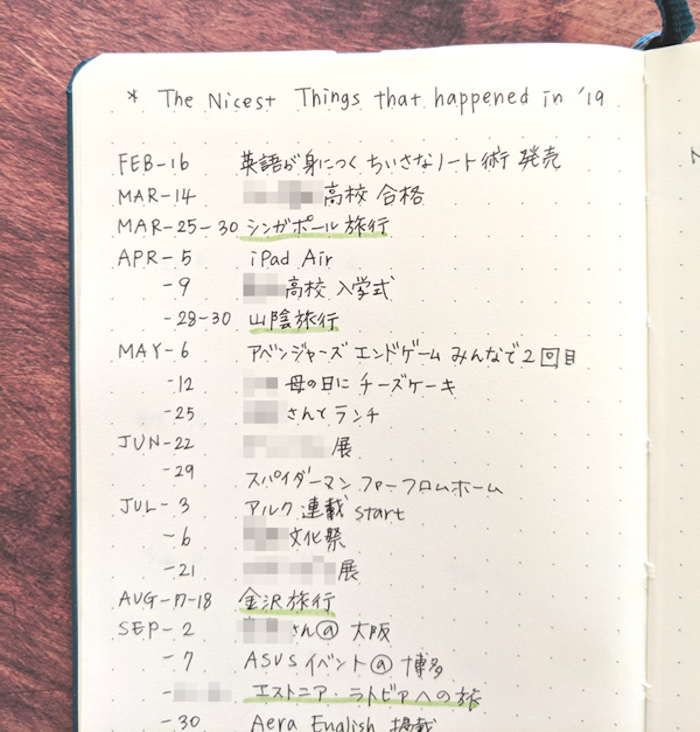 * The Nicest Things that happened in '19
FEB-16 英語が身につくちいさなノート術 発売
MAR-14 高校 合格
MAR-25-30 シンガポール旅行
APR-5 iPad Air
-9 高校 入学式
-28-30 山陰旅行
MAY-6 アベンジャーズ エンドゲーム みんなで2回目
-12 母の日に チーズケーキ
-25 さんと ランチ
JUN-22 展
-29 スパイダーマン ファーフロムホーム
JUL-3 アルク 連載 start
-6 文化祭
-21 展
AUG-17-18 金沢旅行
SEP-2 さん@ 大阪
-7 ASUS イベント@ 博多
- エストニア・ラトビアへの旅
-30 Aera English 掲載